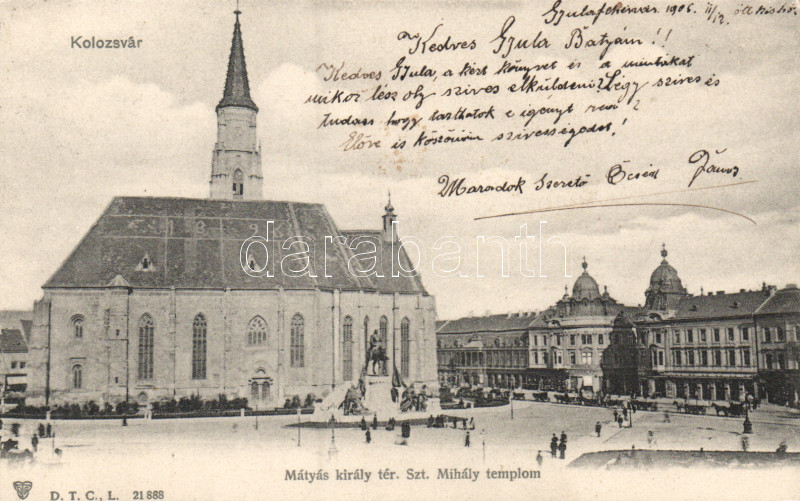 Gyulafehérvár 1906 II/12.
Kolozsvár
Kedves Gyula Bátyám!!
Kedves Gyula, a kért könyvet és a mintákat
mikor lész oly szives elküldeni? Légy szives és
tudass hogy tarthatok e igényt
Előre is köszönöm szivességedet!
Maradok Szerető Öcséd János
darabanth.com
Mátyás király tér. Szt. Mihály templom
D. T. C., L. 21888